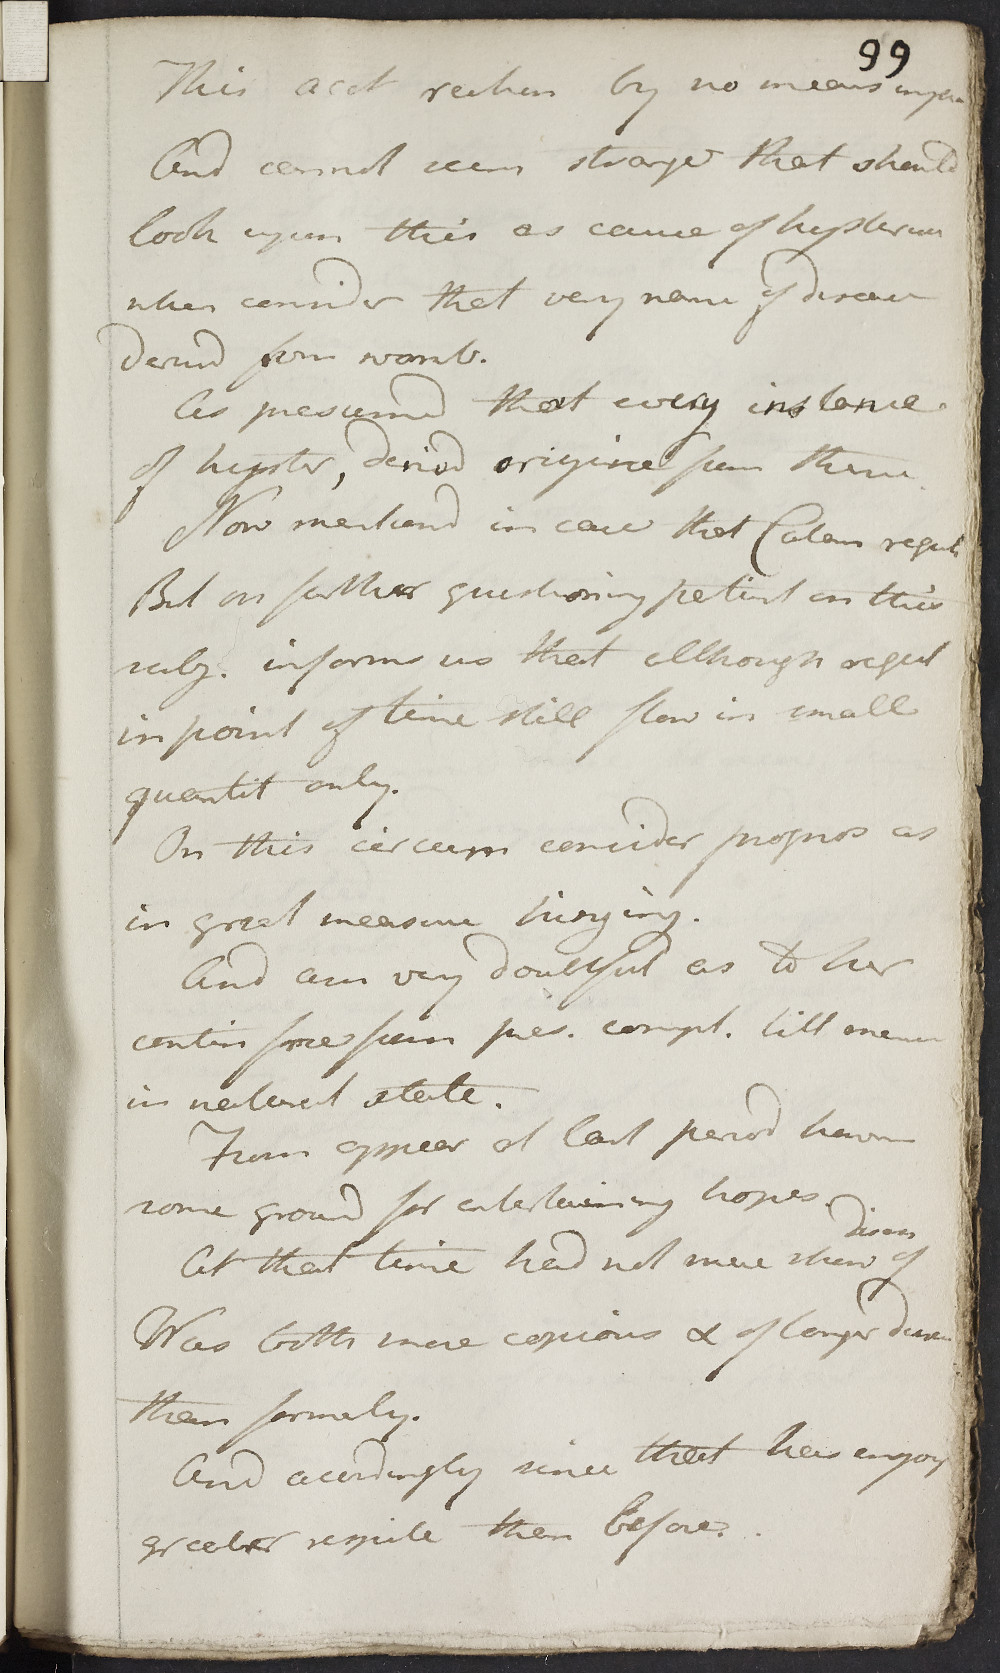 99
This acct rechon by no means
And cannot seem strange that should
look upon this as cause of hysteria
when consider that very name of disease
derivd from womb.
As presumed that every instance
of hyster, derivd origine from them
Now mentiond in case that Catam regul
But on farther questioning patient on this
subj. informs us that although regul
in point of time still flow in small
quantit only.
On this circum consider prognos as
in great measure hinging.
And am very doubtful as to her
contin free from pres. compl. till
in natural state.
From appear at last period have
some ground for entertaining hopes.
At that time had not mere shew of
discu
Was both more copious & of longer durat
than formerly.
And accordingly since that has enjoy
greater respite than before.